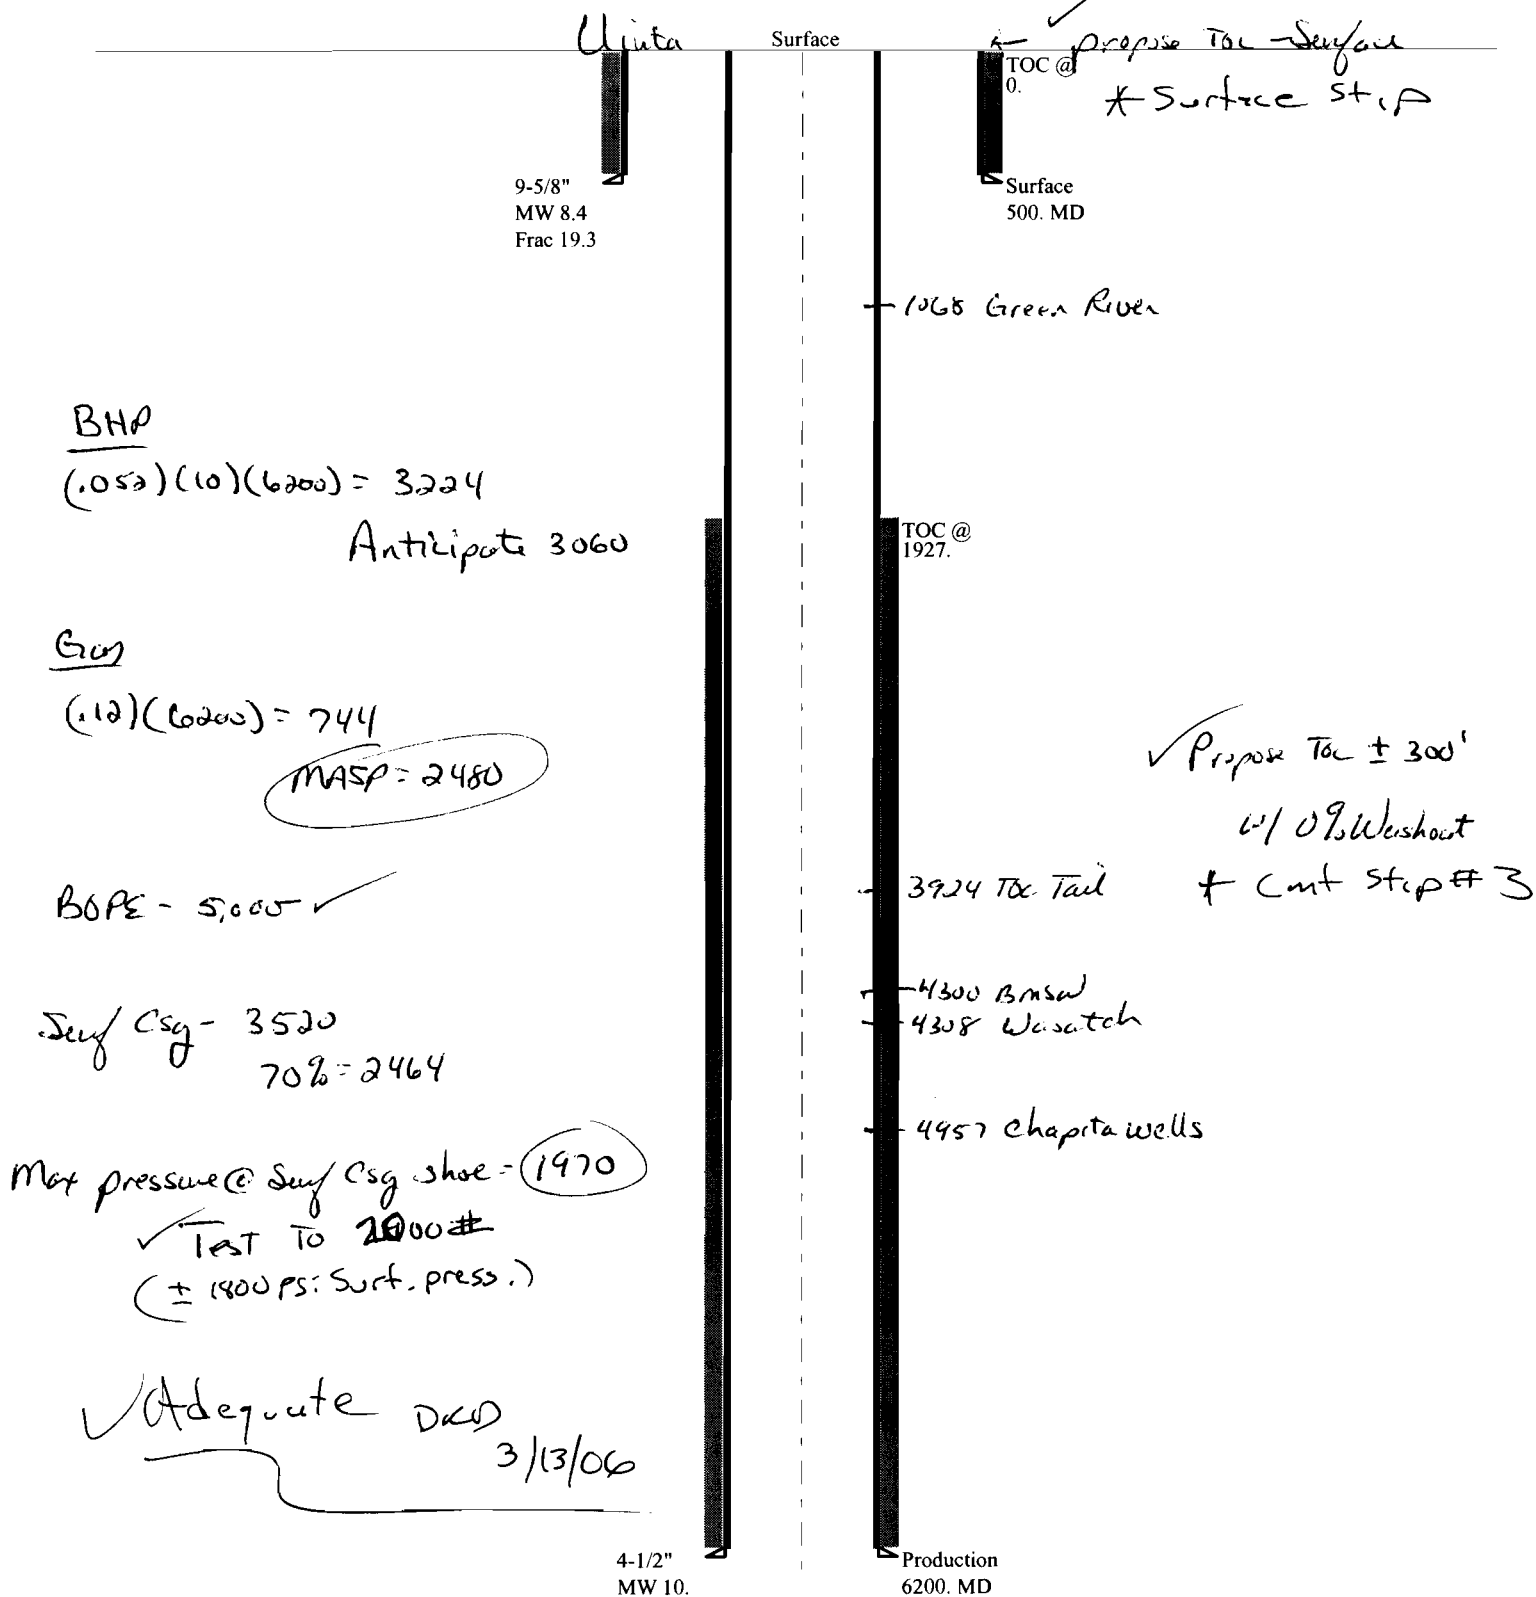 Uinta
Surface
← propose TOC Surface
TOC @
0.
* Surface Stip
9-5/8"
MW 8.4
Frac 19.3
Surface
500. MD
1068 Green River
BHP
(.052)(10)(6200) = 3224
Anticipate 3060
TOC @
1927.
Gas
(.12)(6200) = 744
MASP = 2480
✓ Propose TOC ± 300'
w/ 0% Washout
* Cmt Stip # 3
3924 TOC Tail
BOPE - 5,000 ✓
4300 BMSW
4308 Wasatch
Surf Csg - 3520
70% = 2464
4957 Chapita wells
Max pressure @ Surf Csg shoe = 1970
✓ Test To 2000#
(± 1800 psi Surf. press.)
✓ Adequate DKD
3/13/06
4-1/2"
MW 10.
Production
6200. MD